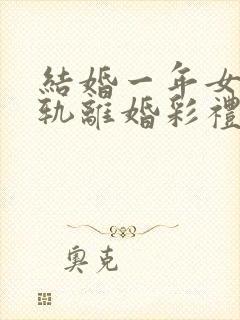 結婚一年女
軌離婚彩禮
奧克